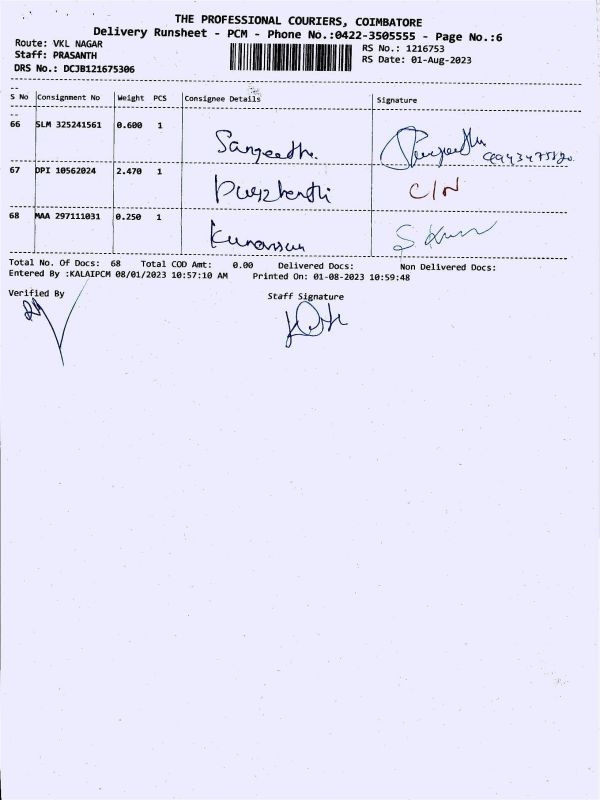 THE PROFESSIONAL COURIERS, COIMBATORE
Delivery Runsheet - PCM - Phone No.:0422-3505555 - Page No.:6
Route: VKL NAGAR
Staff: PRASANTH
DRS No.: DCJB121675306
RS No.: 1216753
RS Date: 01-Aug-2023
S No Consignment No Weight PCS Consignee Details Signature
66 SLM 325241561 0.600 1 Sangeetha.
67 DPI 10562024 2.470 1 C/N
68 MAA 297111031 0.250 1
Total No. Of Docs: 68 Total COD Amt: 0.00 Delivered Docs: Non Delivered Docs:
Entered By :KALAIPCM 08/01/2023 10:57:10 AM Printed On: 01-08-2023 10:59:48
Verified By
Staff Signature